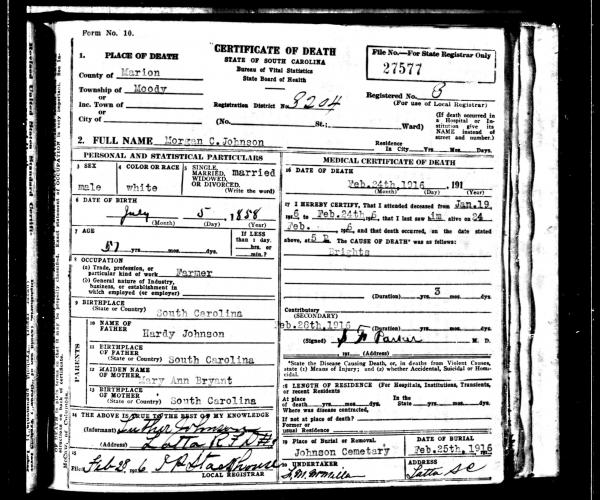 Form No. 10.
CERTIFICATE OF DEATH
STATE OF SOUTH CAROLINA
Bureau of Vital Statistics
State Board of Health
File No.—For State Registrar Only
27577
1. PLACE OF DEATH
County of Marion
Township of Moody
or
Inc. Town of
or
City of
Registration District No. 3204
Registered No. 8
(For use of Local Registrar)
(No. St.; Ward)
(If death occurred in a Hospital or Institution give its NAME instead of street and number.)
2. FULL NAME Morgan C. Johnson
Residence
In City Yrs. Mos. Days.
PERSONAL AND STATISTICAL PARTICULARS
3 SEX
male
4 COLOR OR RACE
white
5 SINGLE, MARRIED, WIDOWED, OR DIVORCED.
(Write the word)
married
6 DATE OF BIRTH
July 5 1858
(Month) (Day) (Year)
7 AGE
57 yrs. mos. ds.
IF LESS than 1 day, hrs. or min.?
8 OCCUPATION
(a) Trade, profession, or particular kind of work Farmer
(b) General nature of Industry, business, or establishment in which employed (or employer)
9 BIRTHPLACE
(State or Country) South Carolina
PARENTS
10 NAME OF FATHER Hardy Johnson
11 BIRTHPLACE OF FATHER
(State or Country) South Carolina
12 MAIDEN NAME OF MOTHER Mary Ann Bryant
13 BIRTHPLACE OF MOTHER
(State or Country) South Carolina
14 THE ABOVE IS TRUE TO THE BEST OF MY KNOWLEDGE
(Informant) Luther Johnson
Latta R F D #1
15
Filed Feb 28, 1916 Stackhouse
LOCAL REGISTRAR
MEDICAL CERTIFICATE OF DEATH
16 DATE OF DEATH
Feb.24th.1916 191
(Month) (Day) (Year)
17 I HEREBY CERTIFY, That I attended deceased from Jan.19
1916 to Feb.24th 6, that I last saw im alive on 24
Feb. 6, and that death occurred, on the date stated
above, at 5 P. The CAUSE OF DEATH* was as follows:
Brights
(Duration) 3 yrs. mos. ds.
Contributory
(SECONDARY)
(Duration) yrs. mos. dys.
Feb.26th.1916
(Signed) Parker M. D.
191 (Address)
*State the Disease Causing Death, or, in deaths from Violent Causes, state (1) Means of Injury; and (2) whether Accidental, Suicidal or Homicidal.
18 LENGTH OF RESIDENCE (For Hospitals, Institutions, Transients, or recent Residents
At place of death yrs. mos. ds. In the State yrs. mos. ds.
Where was disease contracted,
if not at place of death?
Former or
usual residence
19 Place of Burial or Removal.
Johnson Cemetary
DATE OF BURIAL
Feb.25th.1916
20 UNDERTAKER
ADDRESS
Latta SC